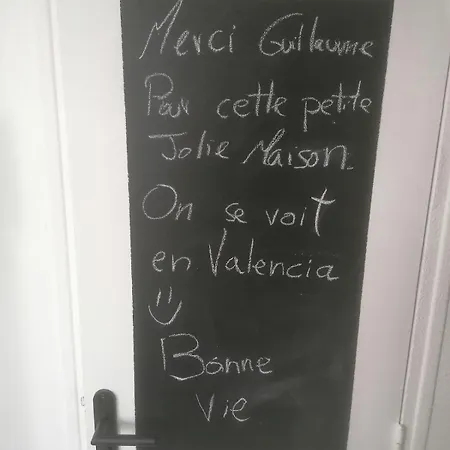 Merci Guillaume
Pour cette petite
Jolie Maison.
On se voit
en Valencia
Bonne
Vie